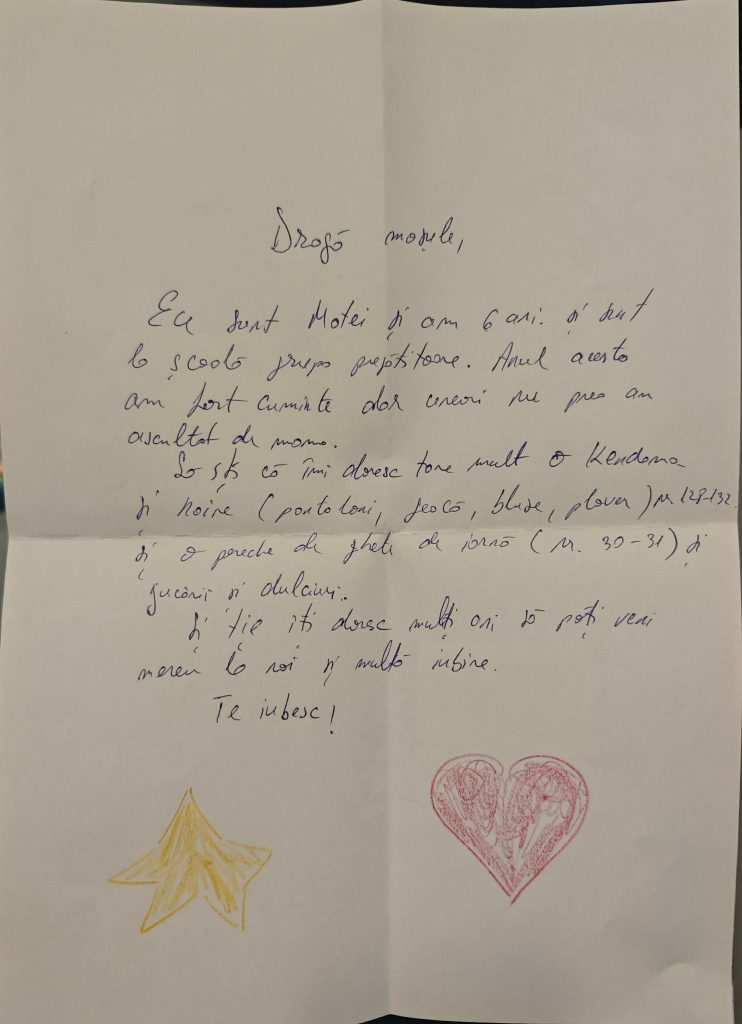 Dragă moșule,
Eu sunt Matei și am 6 ani. și sunt
la școală grupa pregătitoare. Anul acesta
am fost cuminte dar uneori nu prea am
ascultat de mama.
Să știi că îmi doresc tare mult o Kendama
și haine (pantaloni, geacă, bluze, plover) nr. 128-132
și o pereche de ghete de iarnă (nr. 30-31) și
jucării și dulciuri.
Și ție îți doresc mulți ani să poți veni
mereu la noi și multă iubire.
Te iubesc!